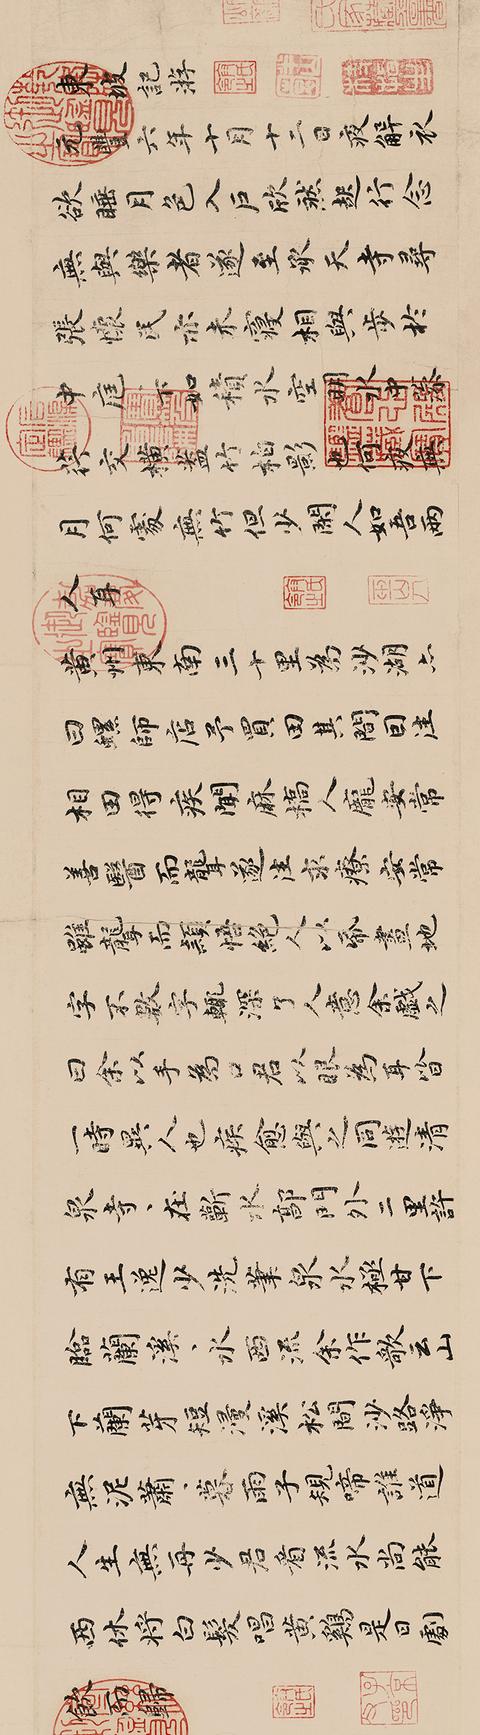 東坡記游
元豐六年十月十二日夜解衣
欲睡月色入戶欣然起行念
無與樂者遂至承天寺尋
張懷民亦未寢相與步於
中庭下如積水空明水中藻
荇交橫蓋竹柏影也何夜無
月何處無竹但少閑人如吾兩
人耳
黃州東南三十里為沙湖亦
曰螺師店予買田其間因往
相田得疾聞麻橋人龐安常
善醫而聾遂往求療安常
雖聾而穎悟絕人以帋畫地
字不數字輒深了人意余戲之
曰余以手為口君以眼為耳皆
一時異人也疾愈與之同遊清
泉寺、在蘄水郭門外二里許
有王逸少洗筆泉水極甘下
臨蘭溪、水西流余作歌云山
下蘭芽短浸溪松間沙路淨
無泥蕭、暮雨子規啼誰道
人生無再少君看流水尚能
西休將白髮唱黃雞是日劇
飲而歸